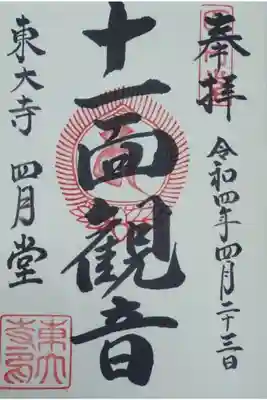 奉拝
令和四年四月二十三日
十一面観音
東大寺 四月堂